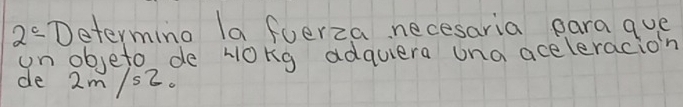 2º Determino la fuerza necesaria para que
un objeto de 40 Kg adquiera una aceleración
de 2m/s2.